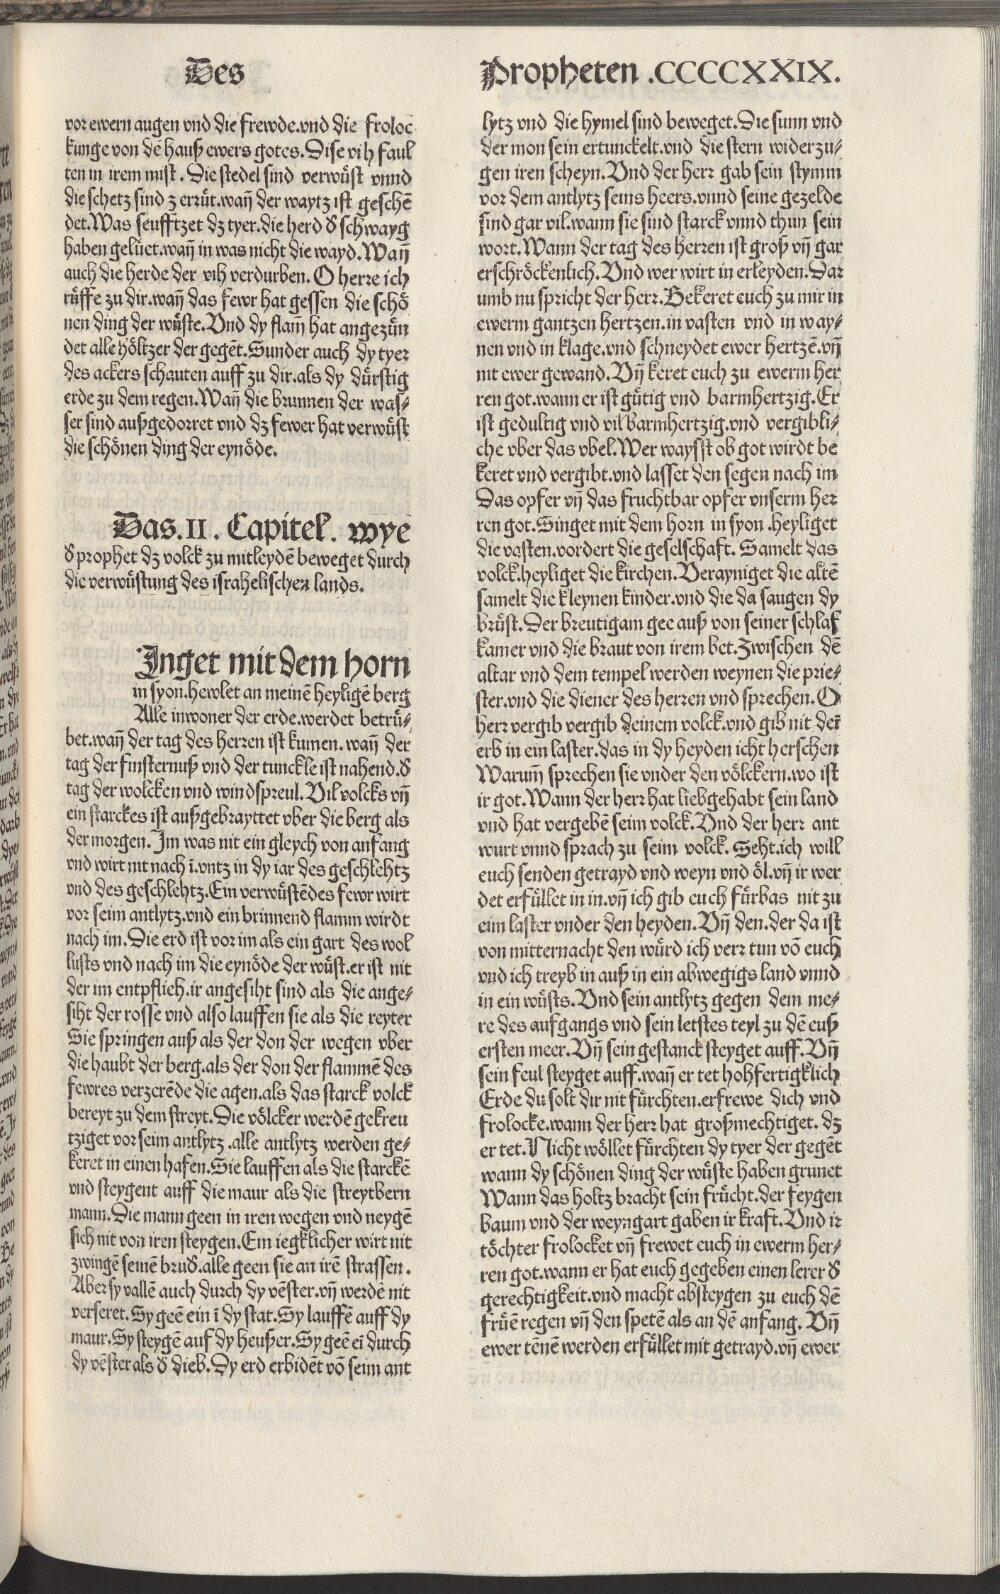 Des
Propheten .CCCCXXIX.
vor ewern augen vnd die frewde.vnd die froloc
kunge von dẽ hauß ewers gotes. Dise vih faul
ten in irem mist. Die stedel sind verwüst vnnd
die schetz sind zerrüt.wañ der waytz ist geschẽ
det. Was seufftzet dz tyer.die herd d̕ schwayg
haben gelüet.wañ in was nicht die wayd. Wañ
auch die herde der vih verdurben. O herre ich
rüffe zu dir.wañ das fewr hat gessen die schö
nen ding der wüste. Vnd dy flam̃ hat angezün
det alle höltzer der gegẽt. Sunder auch dy tyer
des ackers schauten auff zu dir.als dy dürstig
erde zu dem regen. Wañ die brunnen der was/
ser sind außgedorret vnd dz fewer hat verwüst
die schönen ding der eynöde.
Das .II. Capitel. wye
d̕ prophet dz volck zu mitleydẽ beweget durch
die verwüstung des israhelischen lands.
Jnget mit dem horn
in syon.hewlet an meinẽ heyligẽ berg
Alle inwoner der erde.werdet betrü/
bet.wañ der tag des herren ist kumen. wañ der
tag der finsternuß vnd der tunckle ist nahend.d̕
tag der wolcken vnd windspreul. Vil volcks vñ
ein starckes ist außgebrayttet vber die berg als
der morgen. Im was nit ein gleych von anfang
vnd wirt nit nach ĩ.vntz in dy iar des geschlehtz
vnd des geschlehtz. Ein verwüstẽdes fewr wirt
vor seim antlytz.vnd ein brinnend flamm wirdt
nach im. Die erd ist vor im als ein gart des wol
lusts vnd nach im die eynöde der wüst.er ist nit
der im entpflieh.ir angesiht sind als die ange/
siht der rosse vnd also lauffen sie als die reyter
Sie springen auß als der don der wegen vber
die haubt der berg.als der don der flammẽ des
fewres verzerẽde die agen.als das starck volck
bereyt zu dem streyt. Die völcker werdẽ gekreu
tziget vor seim antlytz.alle antlytz werden ge/
keret in einen hafen. Sie lauffen als die starckẽ
vnd steygent auff die maur als die streytbern
mann. Die mann geen in iren wegen vnd neygẽ
sich nit von iren steygen. Ein iegklicher wirt nit
zwingẽ seinẽ brud̕.alle geen sie an irẽ strassen.
Aber sy vallẽ auch durch dy vẽster.vñ werdẽ nit
verseret. Sy geẽ ein ĩ dy stat. Sy lauffẽ auff dy
maur. Sy steygẽ auf dy heußer. Sy geẽ eĩ durch
dy vẽster als d̕ dieb. Dy erd erbidẽt võ seim ant
lytz vnd die hymel sind beweget. Die sunn vnd
der mon sein ertunckelt.vnd die stern widerzu/
gen iren scheyn. Vnd der herr gab sein stymm
vor dem antlytz seins heers.vnnd seine gezelde
sind gar vil.wann sie sind starck vnnd thun sein
wort. Wann der tag des herren ist groß vñ gar
erschröckenlich. Vnd wer wirt in erleyden. Dar
umb nu spricht der herr. Bekeret euch zu mir in
ewerm gantzen hertzen.in vasten vnd in way/
nen vnd in klage.vnd schneydet ewer hertzẽ.vñ
nit ewer gewand. Vñ keret euch zu ewerm her
ren got.wann er ist gütig vnd barmhertzig. Er
ist gedultig vnd vil barmhertzig.vnd vergibli/
che vber das vbel. Wer waysst ob got wirdt be
keret vnd vergibt.vnd lasset den segen nach im
Das opfer vñ das fruchtbar opfer vnserm her
ren got. Singet mit dem horn in syon.heyliget
die vasten.vordert die geselschaft. Samelt das
volck.heyliget die kirchen. Verayniget die altẽ
samelt die kleynen kinder.vnd die da saugen dy
brüst. Der breutigam gee auß von seiner schlaf
kamer vnd die braut von irem bet. Zwischen dẽ
altar vnd dem tempel werden weynen die prie/
ster.vnd die diener des herren vnd sprechen. O
herr vergib vergib deinem volck.vnd gib nit dein̄
erb in ein laster.das in dy heyden icht herschen
Warum̃ sprechen sie vnder den völckern.wo ist
ir got. Wann der herr hat liebgehabt sein land
vnd hat vergebẽ seim volck. Vnd der herr ant
wurt vnnd sprach zu seim volck. Seht.ich will
euch senden getrayd vnd weyn vnd öl.vñ ir wer
det erfüllet in in.vñ ich gib euch fürbas nit zu
eim laster vnder den heyden. Vñ den.der da ist
von mitternacht den würd ich verr tun võ euch
vnd ich treyb in auß in ein abwegigs land vnnd
in ein wüsts. Vnd sein antlytz gegen dem me/
re des aufgangs vnd sein letstes teyl zu dẽ euß
ersten meer. Vñ sein gestanck steyget auff. Vñ
sein feul steyget auff.wañ er tet hohfertigklich
Erde du solt dir nit fürchten.erfrewe dich vnd
frolocke.wann der herr hat großmechtiget. dz
er tet. Nicht wöllet fürchten dy tyer der gegẽt
wann dy schönen ding der wüste haben grunet
Wann das holtz bracht sein frücht.der feygen
baum vnd der weyngart gaben ir kraft. Vnd ir
töchter frolocket vñ frewet euch in ewerm her/
ren got.wann er hat euch gegeben einen lerer d̕
gerechtigkeit.vnd macht absteygen zu euch dẽ
früẽ regen vñ den spetẽ als an dẽ anfang. Vñ
ewer tẽnẽ werden erfüllet mit getrayd.vñ ewer